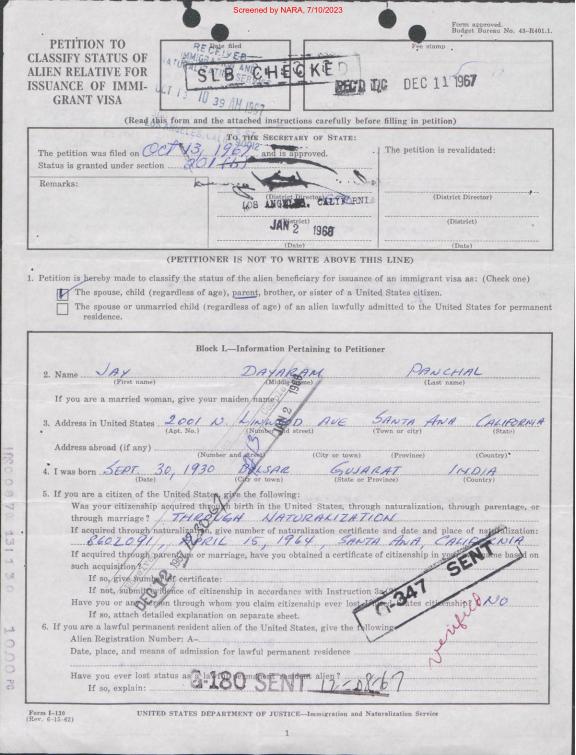 Screened by NARA, 7/10/2023
Form approved.
Budget Bureau No. 43-R401.1.
PETITION TO
CLASSIFY STATUS OF
ALIEN RELATIVE FOR
ISSUANCE OF IMMI-
GRANT VISA
Date filed
RECEIVED
IMMIGRATION AND
NATURALIZATION SERVICE
SLB CHECKED
OCT 13 10 39 AM 1967
LOS ANGELES, CALIF. 90012
Fee stamp
REC'D T/C DEC 11 1967
(Read this form and the attached instructions carefully before filling in petition)
TO THE SECRETARY OF STATE:
The petition was filed on OCT 13, 1967 and is approved.
Status is granted under section 201(b)
The petition is revalidated:
Remarks:
(District Director)
LOS ANGELES, CALIFORNIA
(District)
JAN 2 1968
(Date)
(District Director)
(District)
(Date)
(PETITIONER IS NOT TO WRITE ABOVE THIS LINE)
1. Petition is hereby made to classify the status of the alien beneficiary for issuance of an immigrant visa as: (Check one)
The spouse, child (regardless of age), parent, brother, or sister of a United States citizen.
The spouse or unmarried child (regardless of age) of an alien lawfully admitted to the United States for permanent
residence.
Block I.—Information Pertaining to Petitioner
2. Name JAY DAYARAM PANCHAL
(First name) (Middle name) (Last name)
If you are a married woman, give your maiden name
3. Address in United States 2001 N. LINWOOD AVE SANTA ANA CALIFORNIA
(Apt. No.) (Number and street) (Town or city) (State)
Address abroad (if any)
(Number and street) (City or town) (Province) (Country)
4. I was born SEPT. 30, 1930 BULSAR GUJARAT INDIA
(Date) (City or town) (State or Province) (Country)
5. If you are a citizen of the United States, give the following:
Was your citizenship acquired through birth in the United States, through naturalization, through parentage, or
through marriage? THROUGH NATURALIZATION
If acquired through naturalization, give number of naturalization certificate and date and place of naturalization:
8602091, APRIL 15, 1964, SANTA ANA, CALIFORNIA
If acquired through parentage or marriage, have you obtained a certificate of citizenship in your own name based on
such acquisition?
If so, give number of certificate:
If not, submit evidence of citizenship in accordance with Instruction
Have you or any person through whom you claim citizenship ever lost United States citizenship? NO
If so, attach detailed explanation on separate sheet.
6. If you are a lawful permanent resident alien of the United States, give the following:
Alien Registration Number: A–
Date, place, and means of admission for lawful permanent residence
Have you ever lost status as a lawful permanent resident alien?
If so, explain:
G-180 SENT 12-08-67
JAN 2 1968
DEC 12 1967
G-347 SENT
verified
Form I-130
(Rev. 6-15-62)
UNITED STATES DEPARTMENT OF JUSTICE—Immigration and Naturalization Service
1